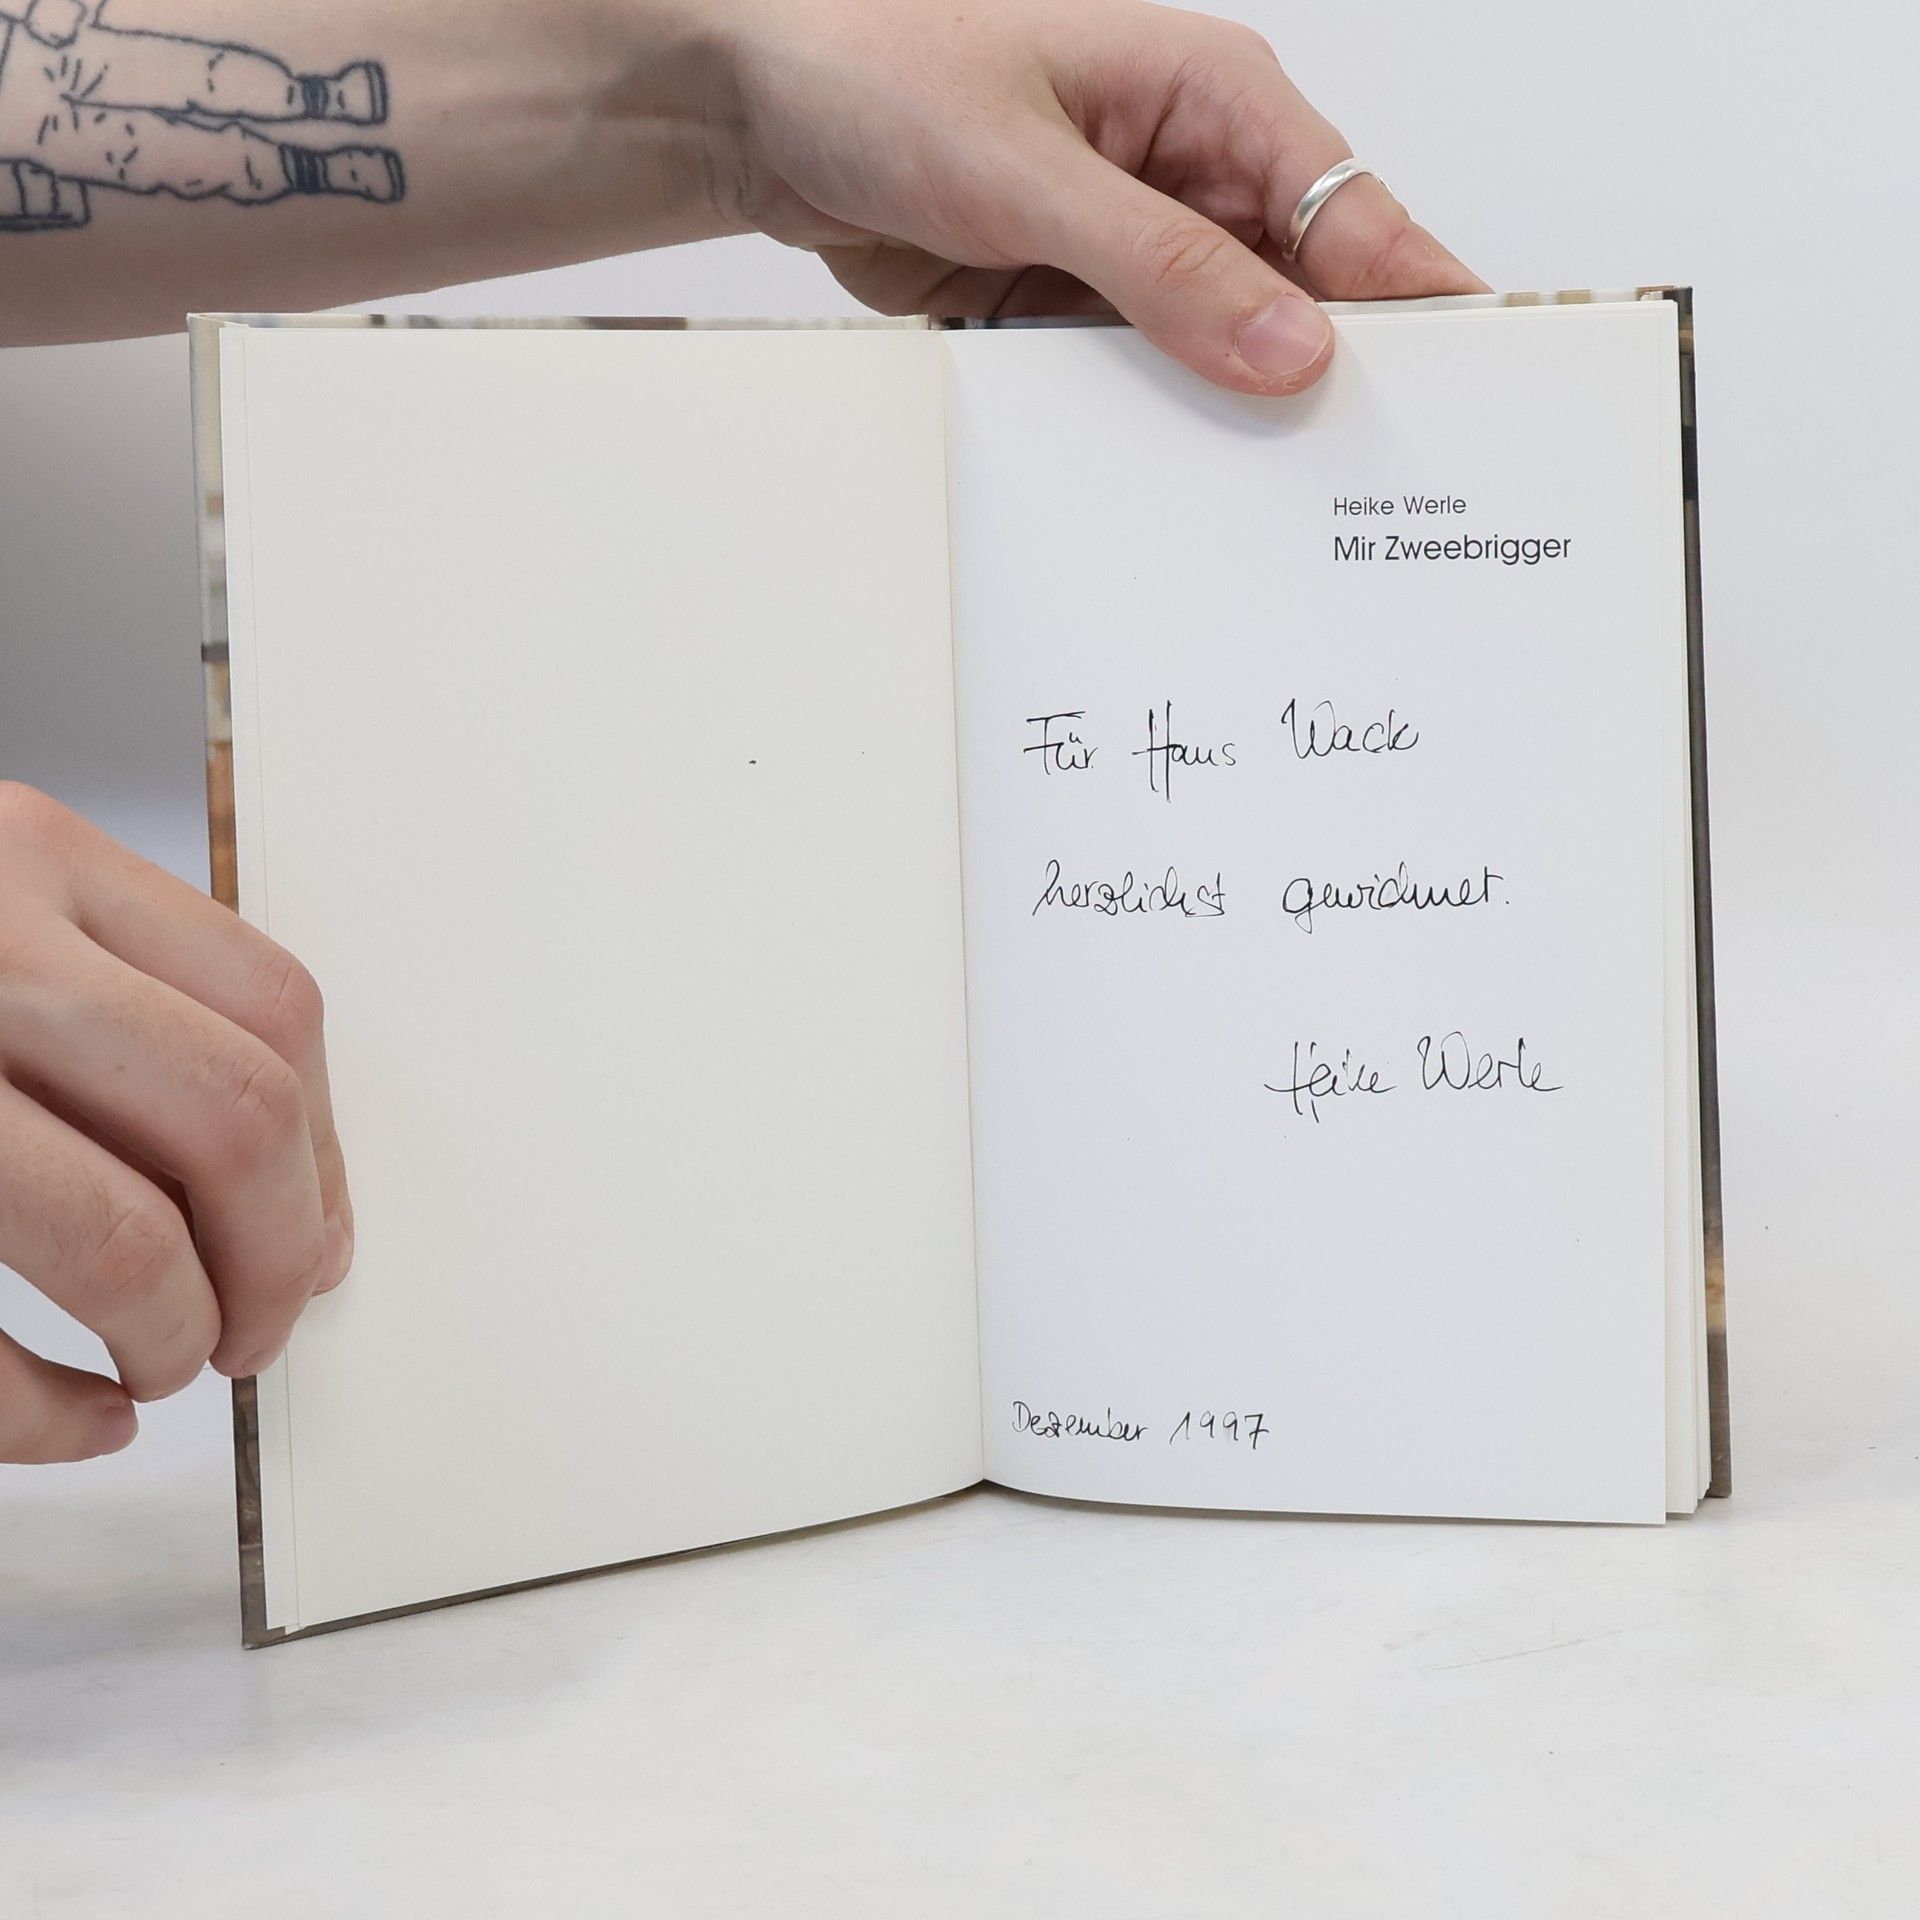 Heike Werle
Mir Zweebrigger
Für Hans Wack
herzlichst gewidmet.
Heike Werle
Dezember 1997